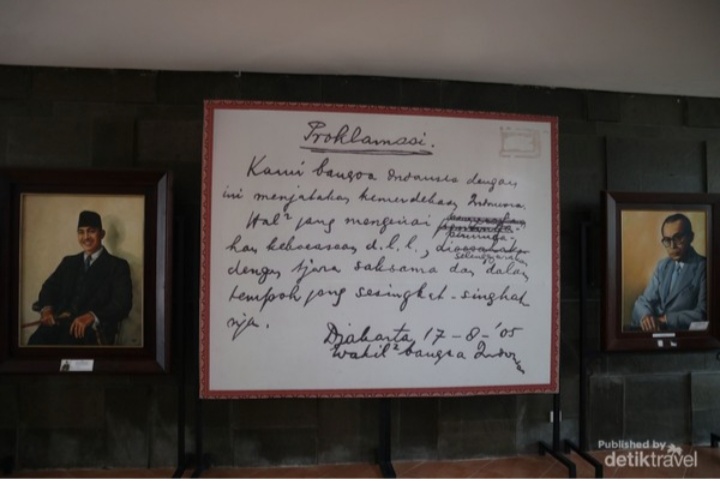 Proklamasi.
Kami bangsa Indonesia dengan
ini menjatakan kemerdekaan Indonesia.
Hal² jang mengenai
pemindahan
kekoeasaan d.l.l.,
diselenggarakan
dengan tjara saksama dan dalam
tempoh jang sesingkat-singkat
nja.
Djakarta 17-8-'05
Wakil² bangsa Indonesia
Published by
detiktravel